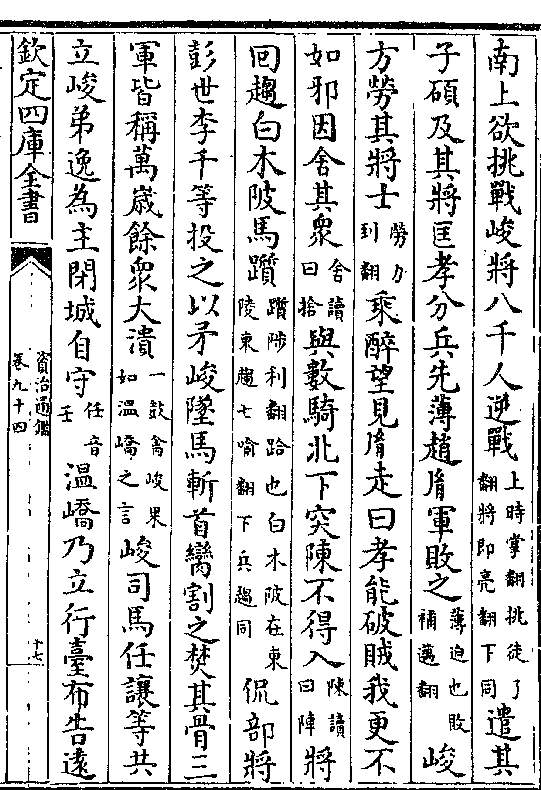 南上欲挑戰峻將八千人逆戰上時掌翻挑徒了翻將即亮翻下同遣其
子碩及其將匡孝分兵先薄趙𦙍軍敗之薄迫也敗補邁翻峻
方勞其將士勞力到翻乘醉望見𦙍走曰孝能破賊我更不
如邪因舍其衆舍讀曰捨與數騎北下突陳不得入陳讀曰陣將
回趨白木陂馬躓躓陟利翻跲也白木陂在東陵東趨七喻翻下兵趨同侃部將
彭世李千等投之以矛峻墜馬斬首臠割之焚其骨三
軍皆稱萬歲餘衆大潰一鼓禽峻果如溫嶠之言峻司馬任讓等共
立峻弟逸為主閉城自守任音壬溫嶠乃立行臺布告逺
欽定四庫全書
資治通鑑
卷九十四
十七